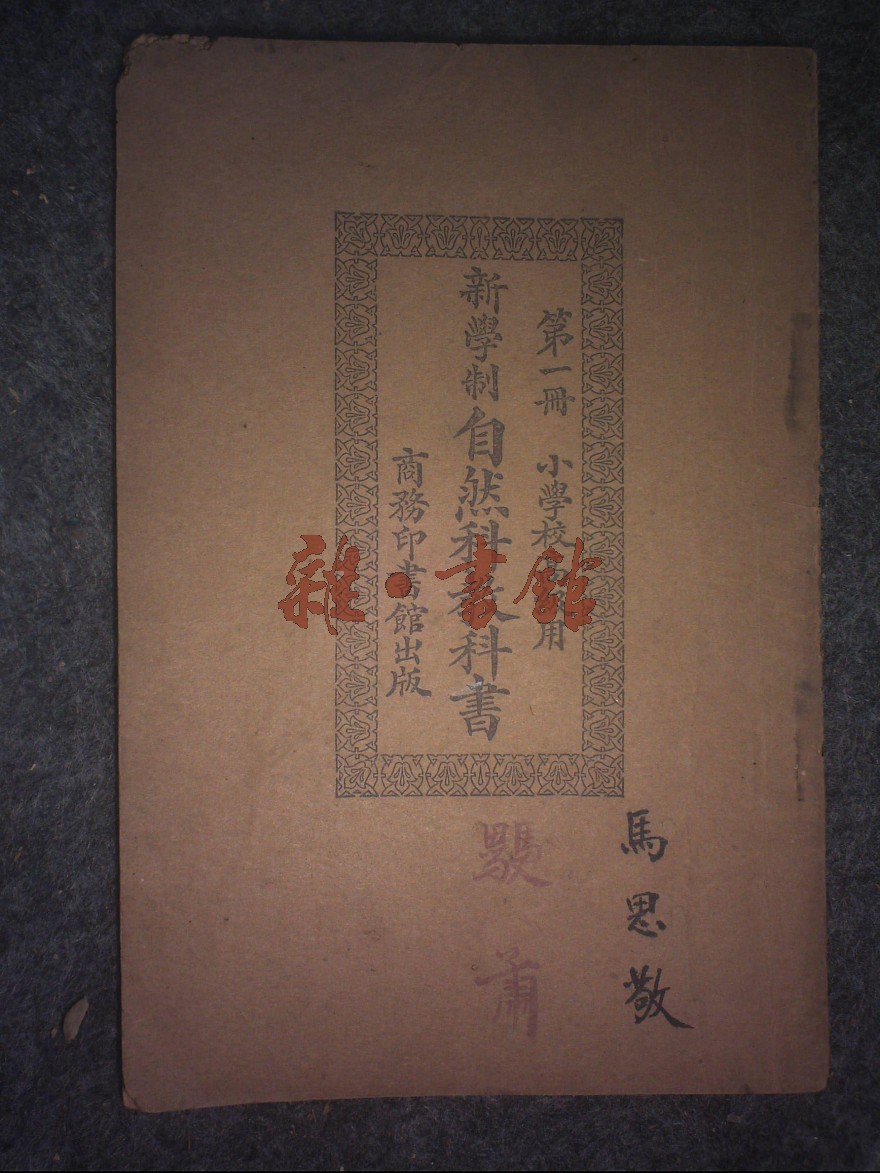 第一冊 小學校高級用
新學制自然科教科書
商務印書館出版
雜·書館
馬思敬
蕭